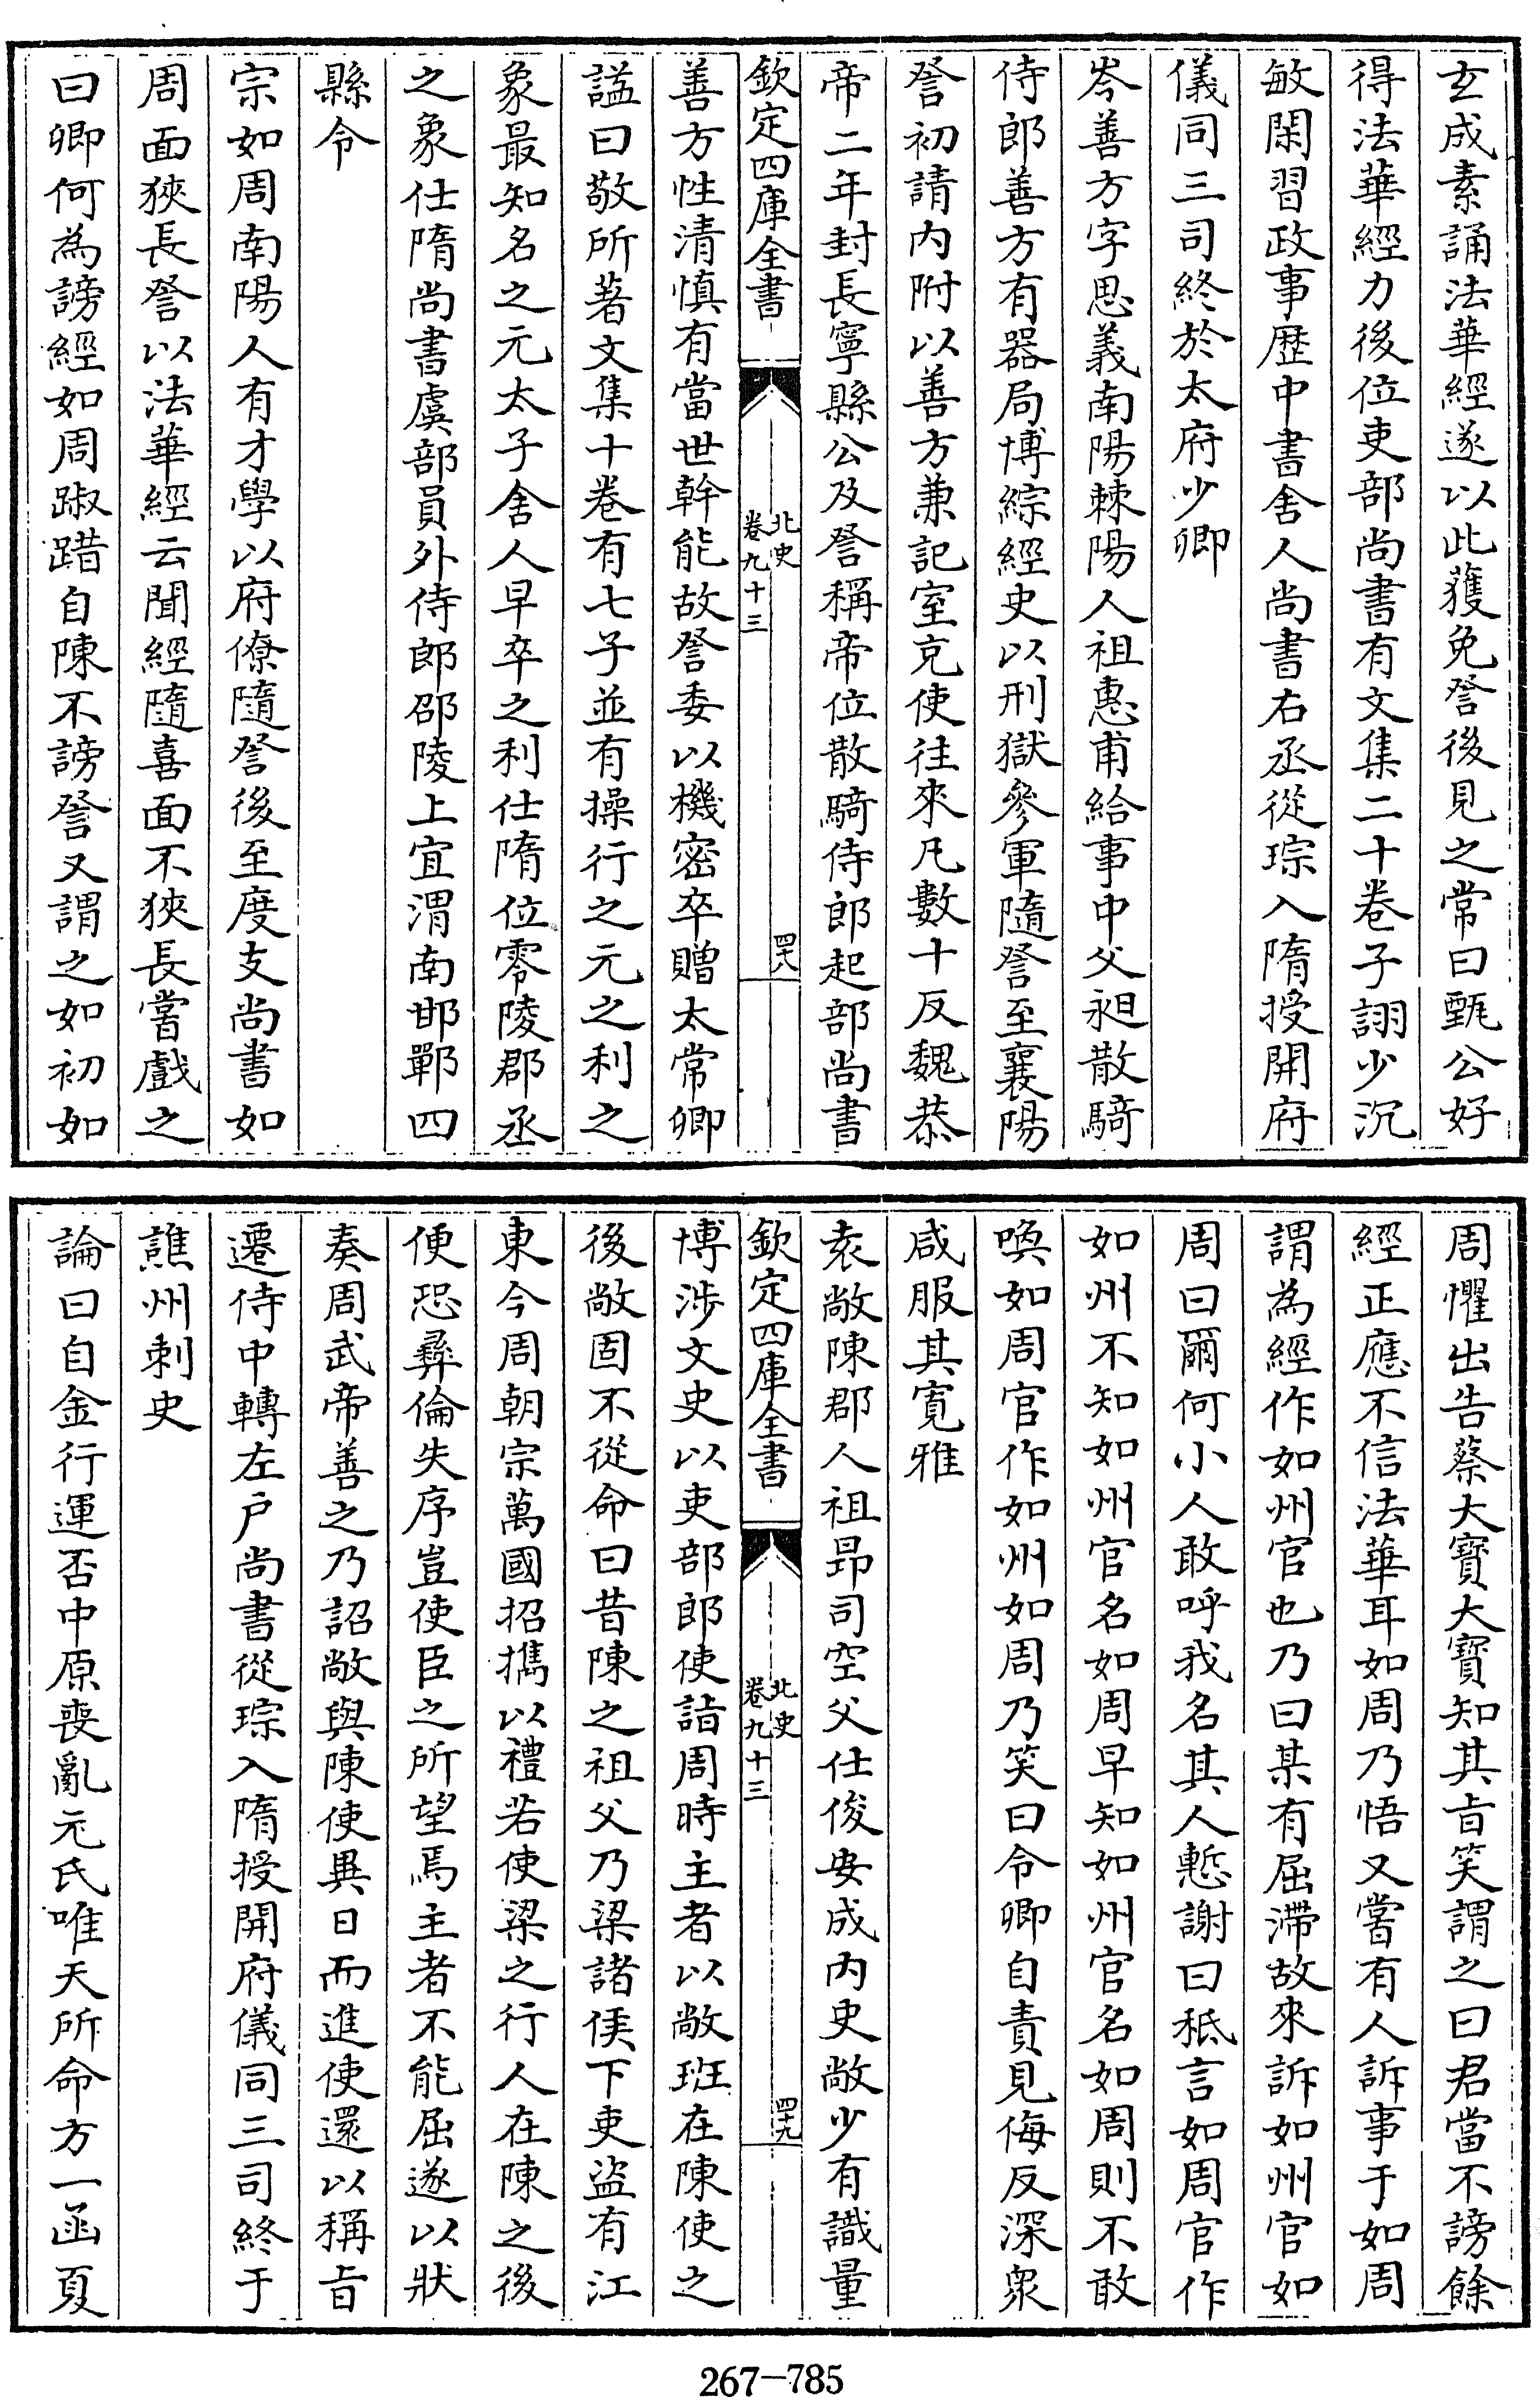 玄成素誦法華經遂以此獲免詧後見之常曰甄公好
得法華經力後位吏部尚書有文集二十卷子詡少沉
敏閑習政事歴中書舍人尚書右丞從琮入隋授開府
儀同三司終於太府少卿
岑善方字思義南陽棘陽人祖惠甫給事中父昶散騎
侍郎善方有器局博綜經史以刑獄參軍隨詧至襄陽
詧初請内附以善方兼記室充使往來凡數十反魏恭
帝二年封長寧縣公及詧稱帝位散騎侍郎起部尚書
欽定四庫全書
北史
卷九十三
四十八
善方性清慎有當世幹能故詧委以機密卒贈太常卿
諡曰敬所著文集十卷有七子並有操行之元之利之
象最知名之元太子舍人早卒之利仕隋位零陵郡丞
之象仕隋尚書虞部員外侍郎邵陵上宜渭南邯鄲四
縣令
宗如周南陽人有才學以府僚隨詧後至度支尚書如
周面狹長詧以法華經云聞經隨喜面不狹長嘗戲之
曰卿何為謗經如周踧踖自陳不謗詧又謂之如初如
周懼出告蔡大寶大寶知其㫖笑謂之曰君當不謗餘
經正應不信法華耳如周乃悟又嘗有人訴事于如周
謂為經作如州官也乃曰某有屈滯故來訴如州官如
周曰爾何小人敢呼我名其人慙謝曰秪言如周官作
如州不知如州官名如周早知如州官名如周則不敢
喚如周官作如州如周乃笑曰令卿自責見侮反深衆
咸服其寛雅
袁敞陳郡人祖昂司空父仕俊安成内史敞少有識量
欽定四庫全書
北史
卷九十三
四十九
博涉文史以吏部郎使詣周時主者以敞班在陳使之
後敞固不從命曰昔陳之祖父乃梁諸侯下吏盜有江
東今周朝宗萬國招攜以禮若使梁之行人在陳之後
便恐彛倫失序豈使臣之所望焉主者不能屈遂以狀
奏周武帝善之乃詔敞與陳使異日而進使還以稱㫖
遷侍中轉左户尚書從琮入隋授開府儀同三司終于
譙州刺史
論曰自金行運否中原喪亂元氏唯天所命方一函夏
267—785